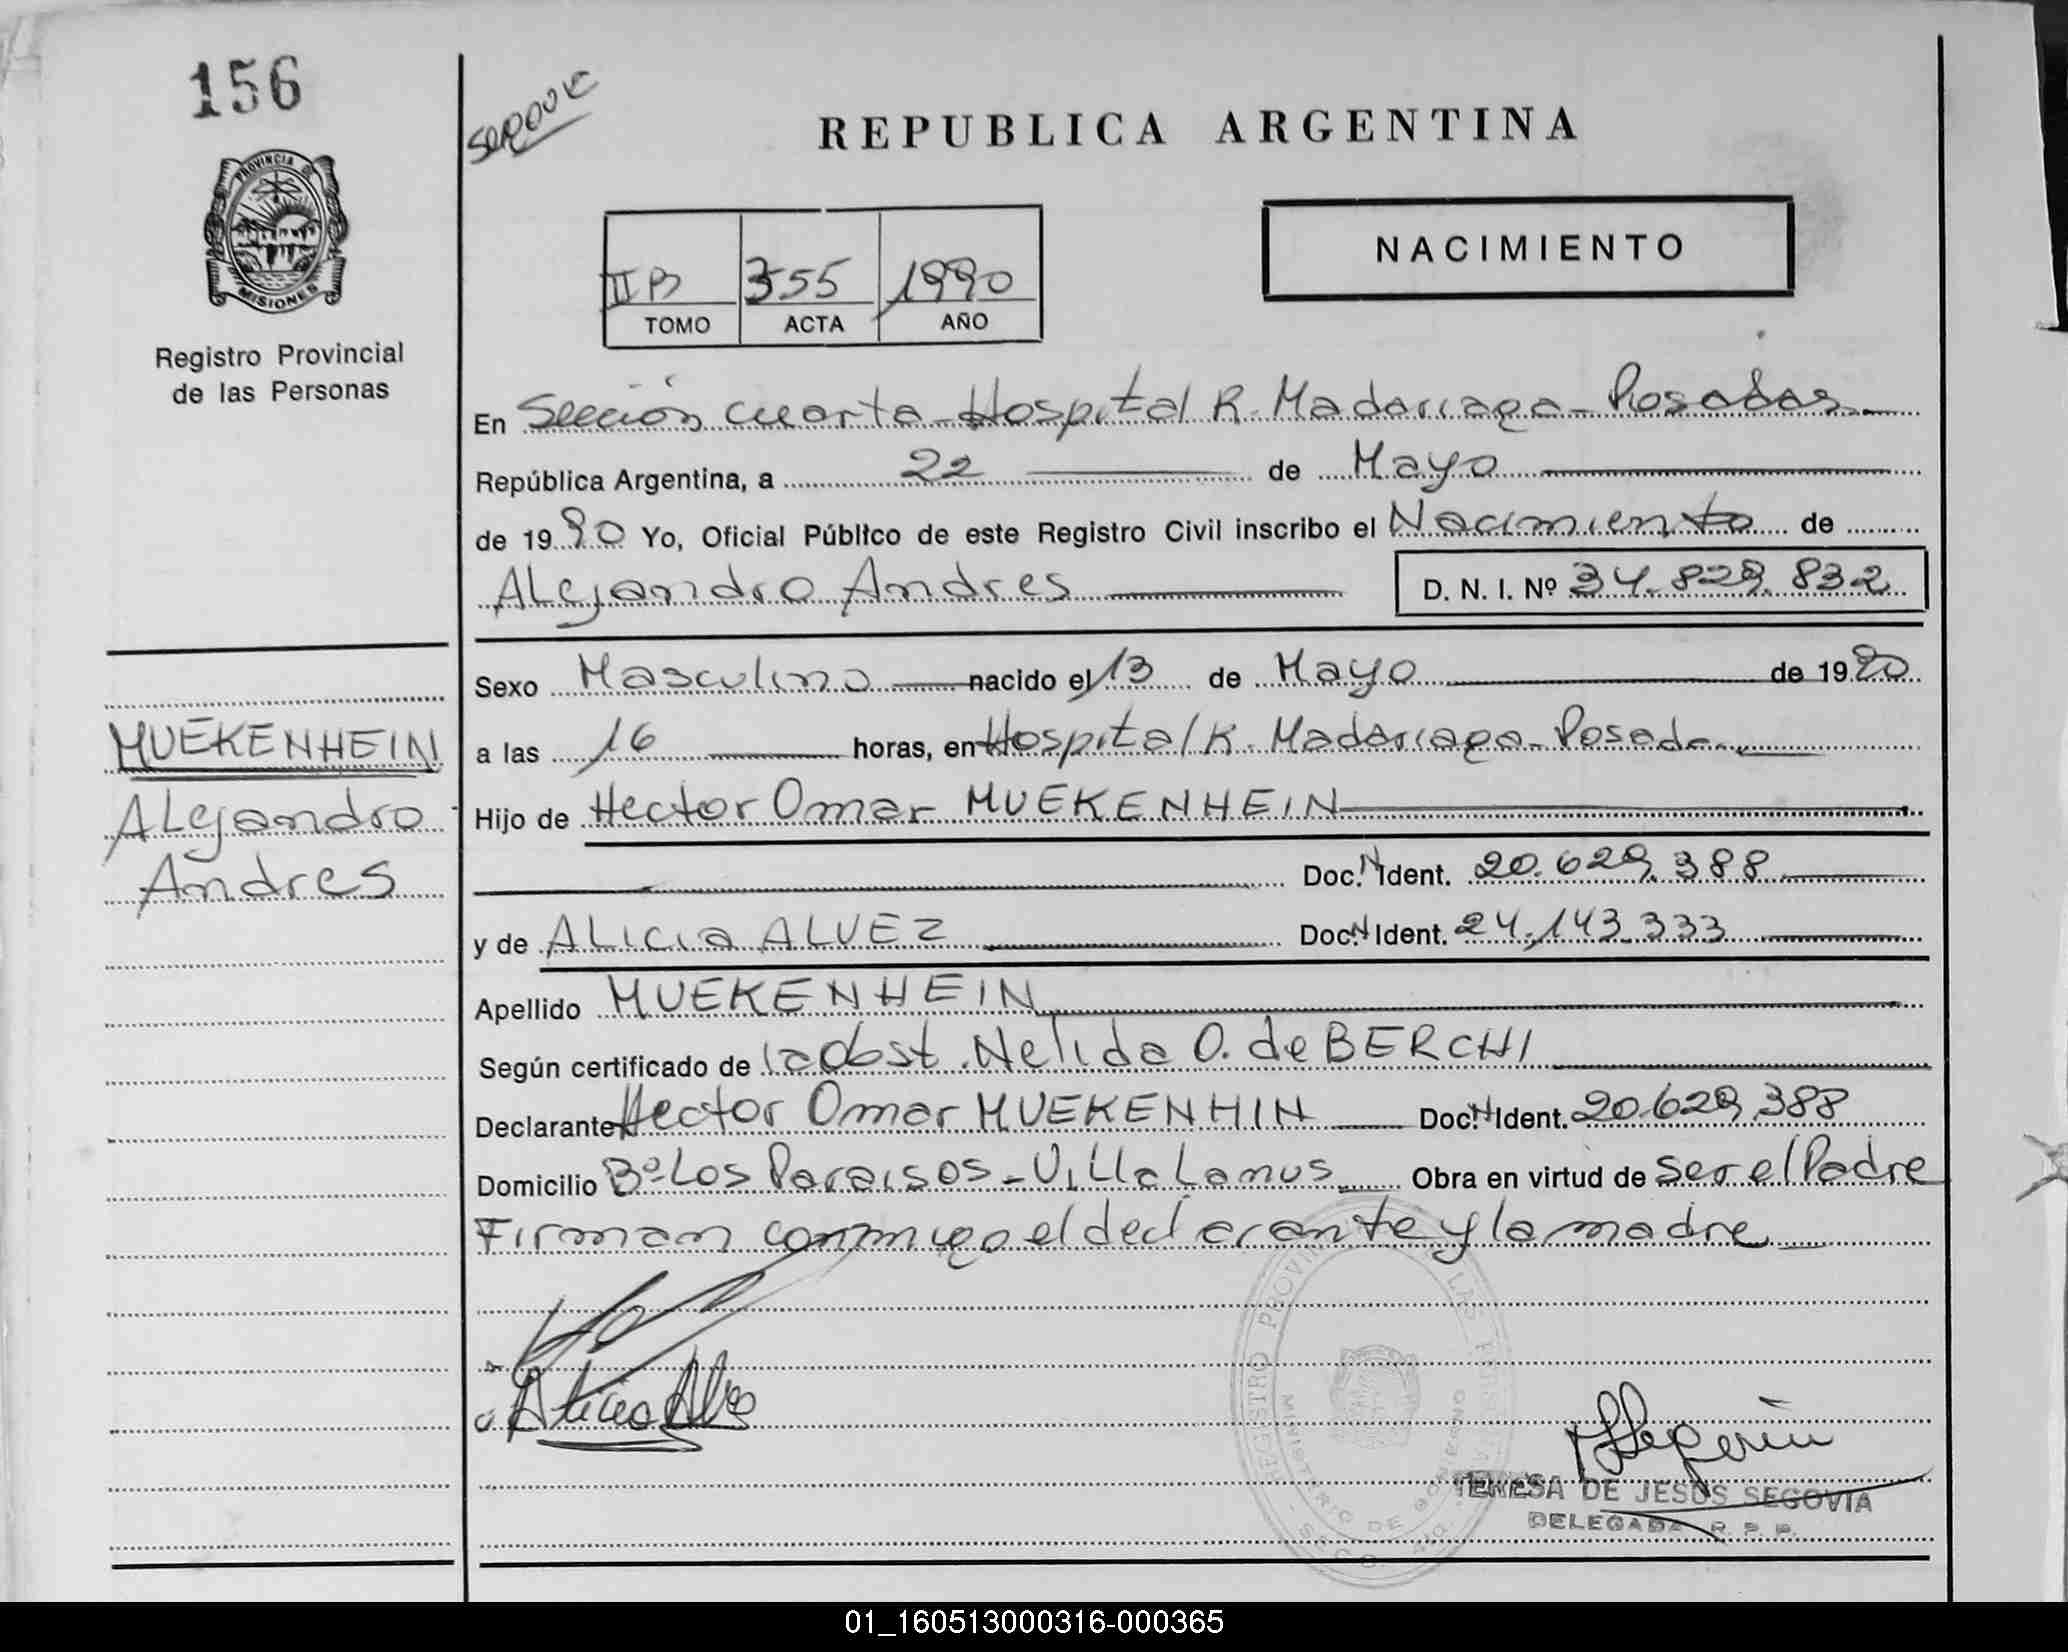 156
SEROVIC
REPUBLICA ARGENTINA
PROVINCIA DE
MISIONES
Registro Provincial
de las Personas
II B 355 1990
TOMO ACTA AÑO
NACIMIENTO
En Sección cuarta - Hospital R. Madariaga - Posadas
República Argentina, a 22 de Mayo
de 1990 Yo, Oficial Público de este Registro Civil inscribo el Nacimiento de
Alejandro Andres D. N. I. Nº 34.829.832
Sexo Masculino nacido el 13 de Mayo de 1990
a las 16 horas, en Hospital R. Madariaga - Posadas
MUEKENHEIN
Alejandro
Andres
Hijo de Hector Omar MUEKENHEIN
Doc. N Ident. 20.629.388
y de ALICIA ALVEZ Doc. N Ident. 24.143.333
Apellido MUEKENHEIN
Según certificado de la Obst. Nelida O. de BERCHI
Declarante Hector Omar MUEKENHIN Doc. N Ident. 20.629.388
Domicilio Bº Los Paraisos - Villa Lanus Obra en virtud de ser el Padre
Firman conmigo el declarante y la madre
Alicia Alvez
REGISTRO PROVINCIAL DE LAS PERSONAS
MINISTERIO DE GOBIERNO
TERESA DE JESUS SEGOVIA
DELEGADA R. P. P.
01_160513000316-000365